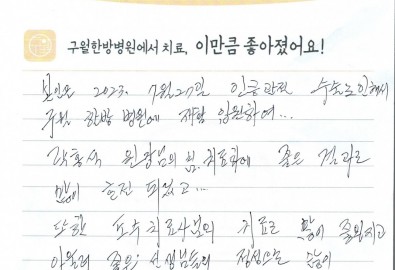 구월한방병원에서 치료, 이만큼 좋아졌어요!
본인은 2023. 7월27일 인공관절 수술로 인해서
구월 한방 병원에 재활 입원하여...
원장님의 치료하에 좋은 결과로
많이 호전 되었고...
또한 도수치료사님의 치료로 많이 좋아지고
아울러 좋은 선생님들의 정성으로